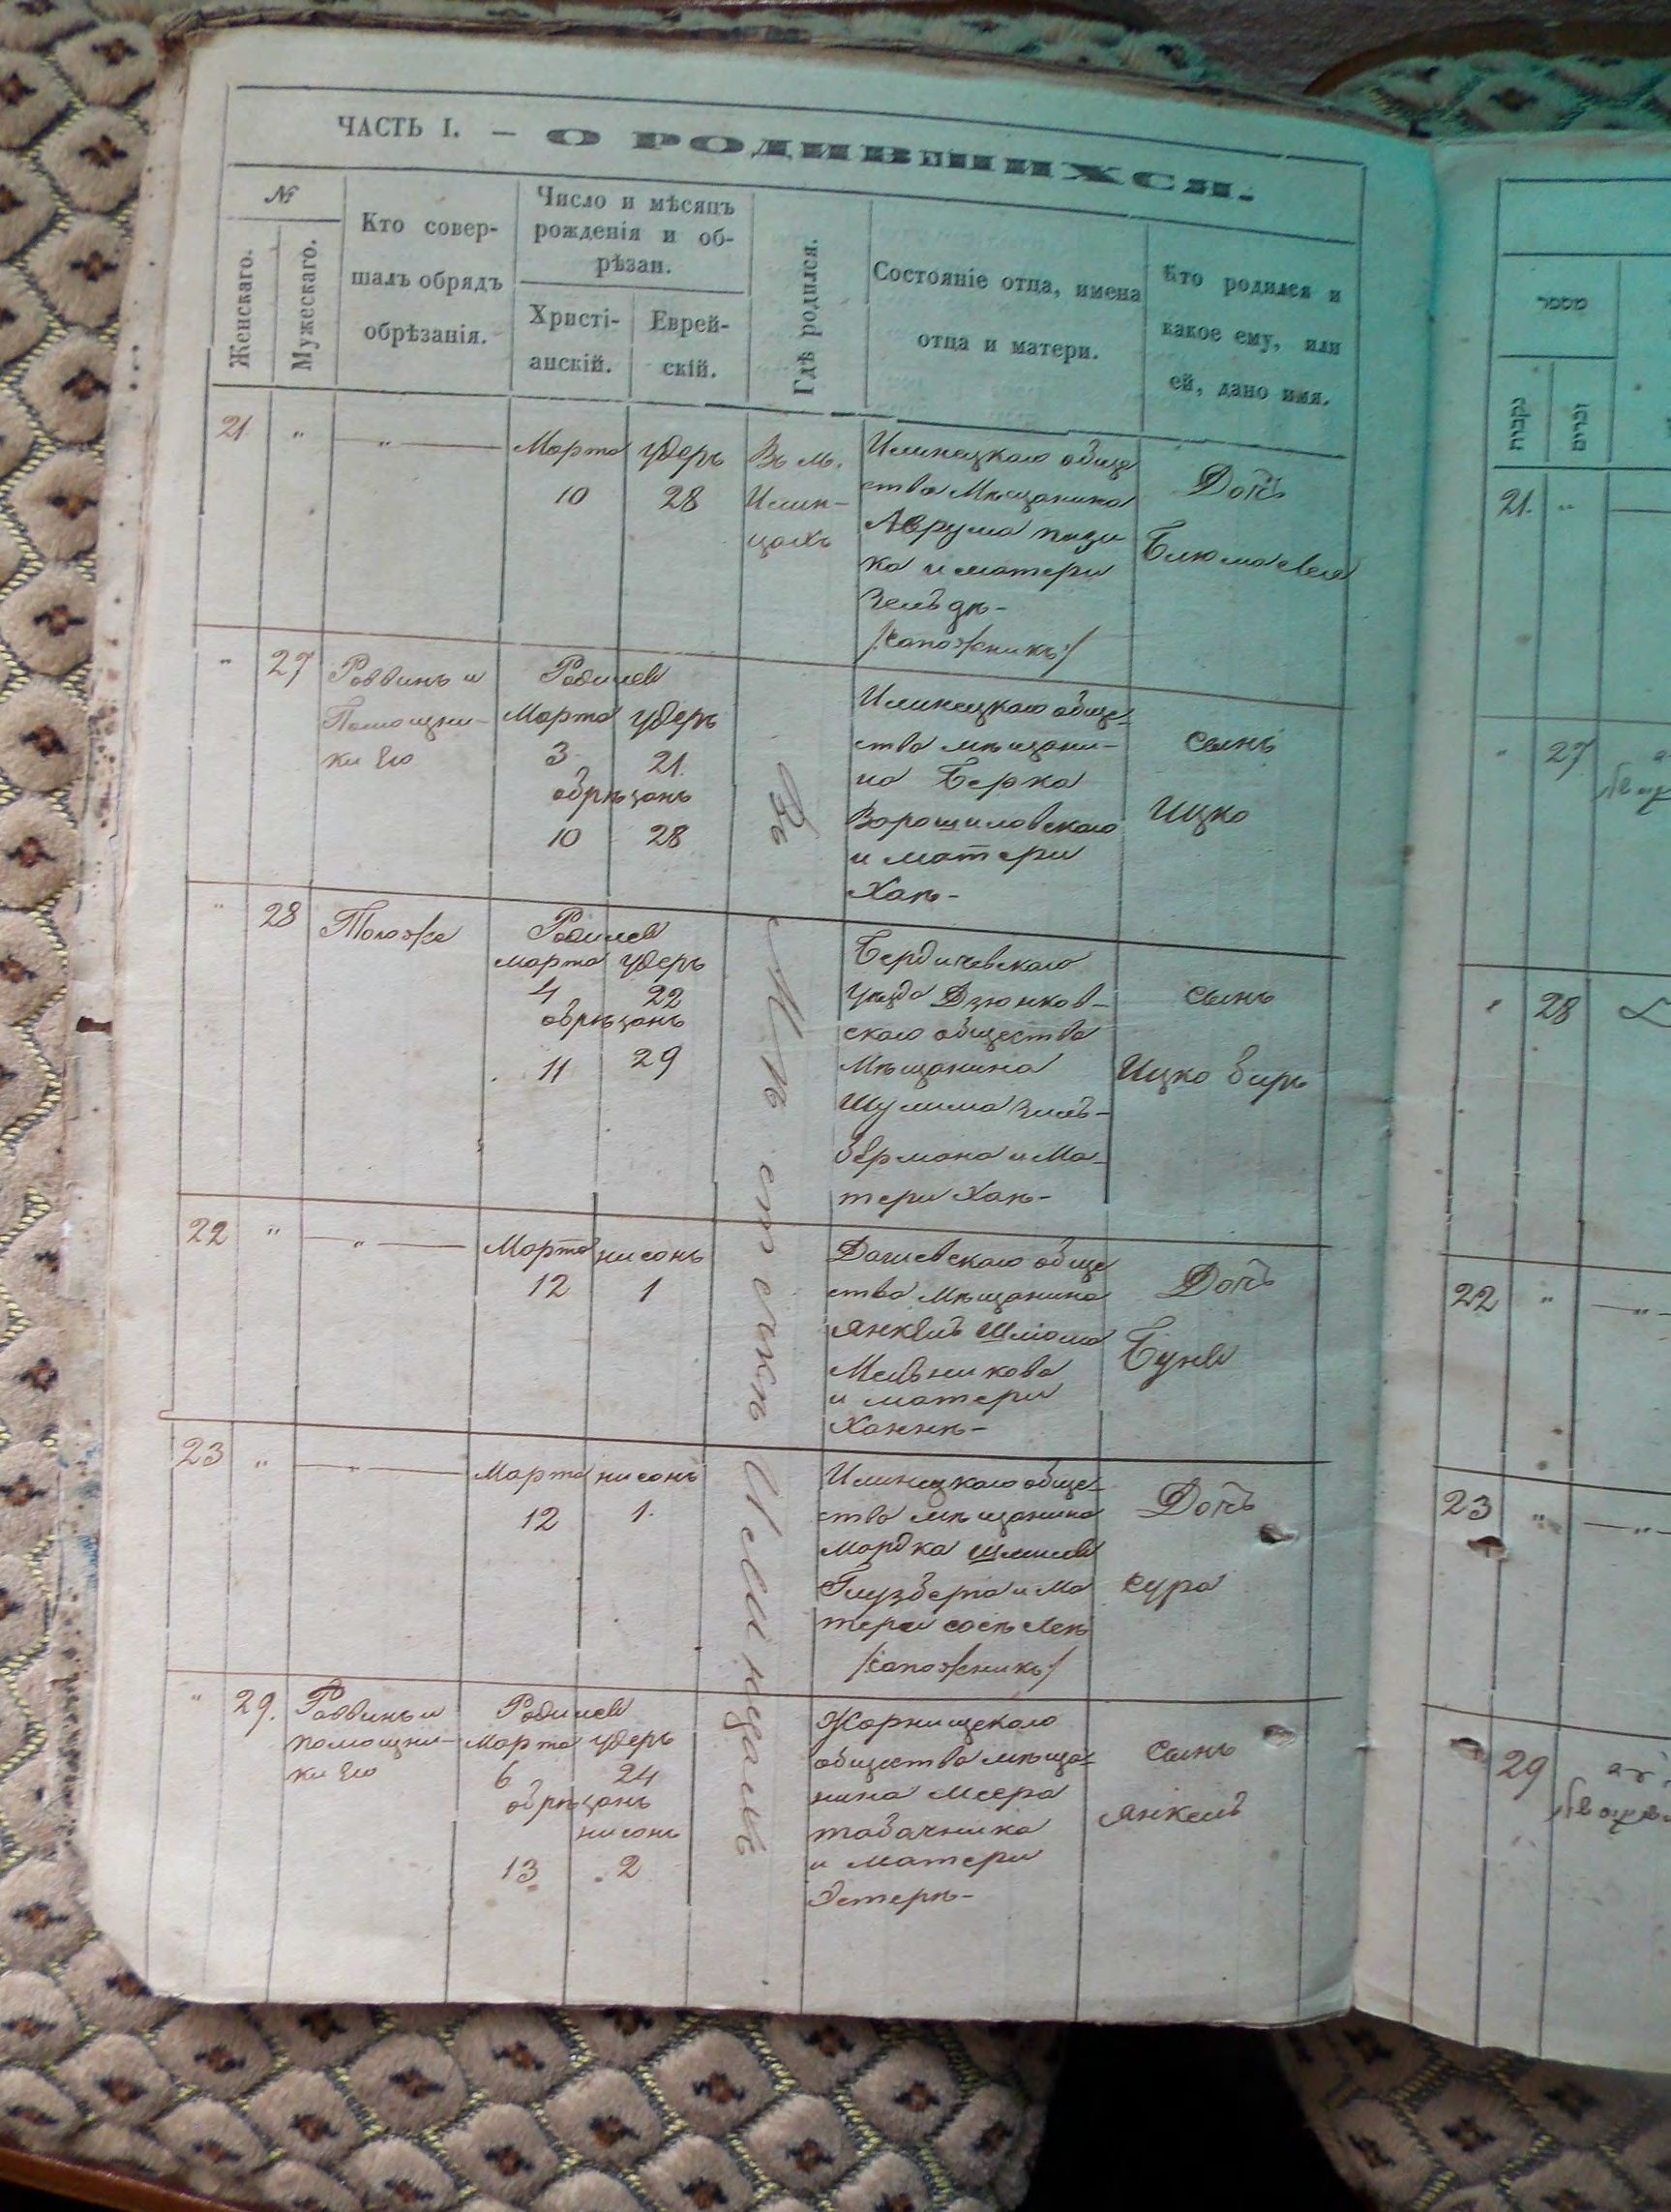 ЧАСТЬ I. — О РОДИВШИХСЯ.
№
Женскаго.
Мужескаго.
Кто совер-
шалъ обрядъ
обрѣзанія.
Число и мѣсяцъ
рожденія и об-
рѣзан.
Христі-
анскій.
Еврей-
скій.
Гдѣ родился.
Состояніе отца, имена
отца и матери.
Кто родился и
какое ему, или
ей, дано имя.
21 " — " — Марта удеръ
10 28
Въ м.
Илин-
цахъ
Илинецкаго обще
ства Мѣщанина
Аврума
ка и матери
Зельдѣ-
/:сапожникъ:/
Дочь
Блюма
" 27 Раввинъ и
Помощни-
ки Его
Родился
Марта удеръ
3 21.
обрѣзанъ
10 28
Илинецкаго обще-
ства мѣщани-
на Берка
Ворошиловскаго
и матери
Хаѣ-
сынъ
Ицко
Въ Мѣстечкѣ Илинцахъ
" 28 Тоже
Родился
марта удеръ
4 22
обрѣзанъ
11 29
Бердичевскаго
уѣзда Дзюнков-
скаго общества
Мѣщанина
Шулима Зиль-
бермана и Ма-
тери Хаѣ-
сынъ
Ицко Беръ
22 " — " — Марта нисонъ
12 1
Дашевскаго обще
ства Мѣщанина
Янкель Шліома
Мельникова
и матери
Ханнѣ-
Дочь
Буня
23 " — " — Марта нисонъ
12 1.
Илинецкаго обще-
ства мѣщанина
Мордка Шмиля
Глузберга и Ма
тери Сосѣ Леѣ
/:сапожникъ:/
Дочь
Сура
" 29. Раввинъ и
помощни-
ки Его
Родился
Марта удеръ
6 24
обрѣзанъ
нисонъ
13 2
Жорнищскаго
общества мѣща-
нина Меера
табачника
и матери
Эстерѣ-
Сынъ
Янкель
מספר
21. "
" 27
" 28
22 " — " —
23 " — " —
29